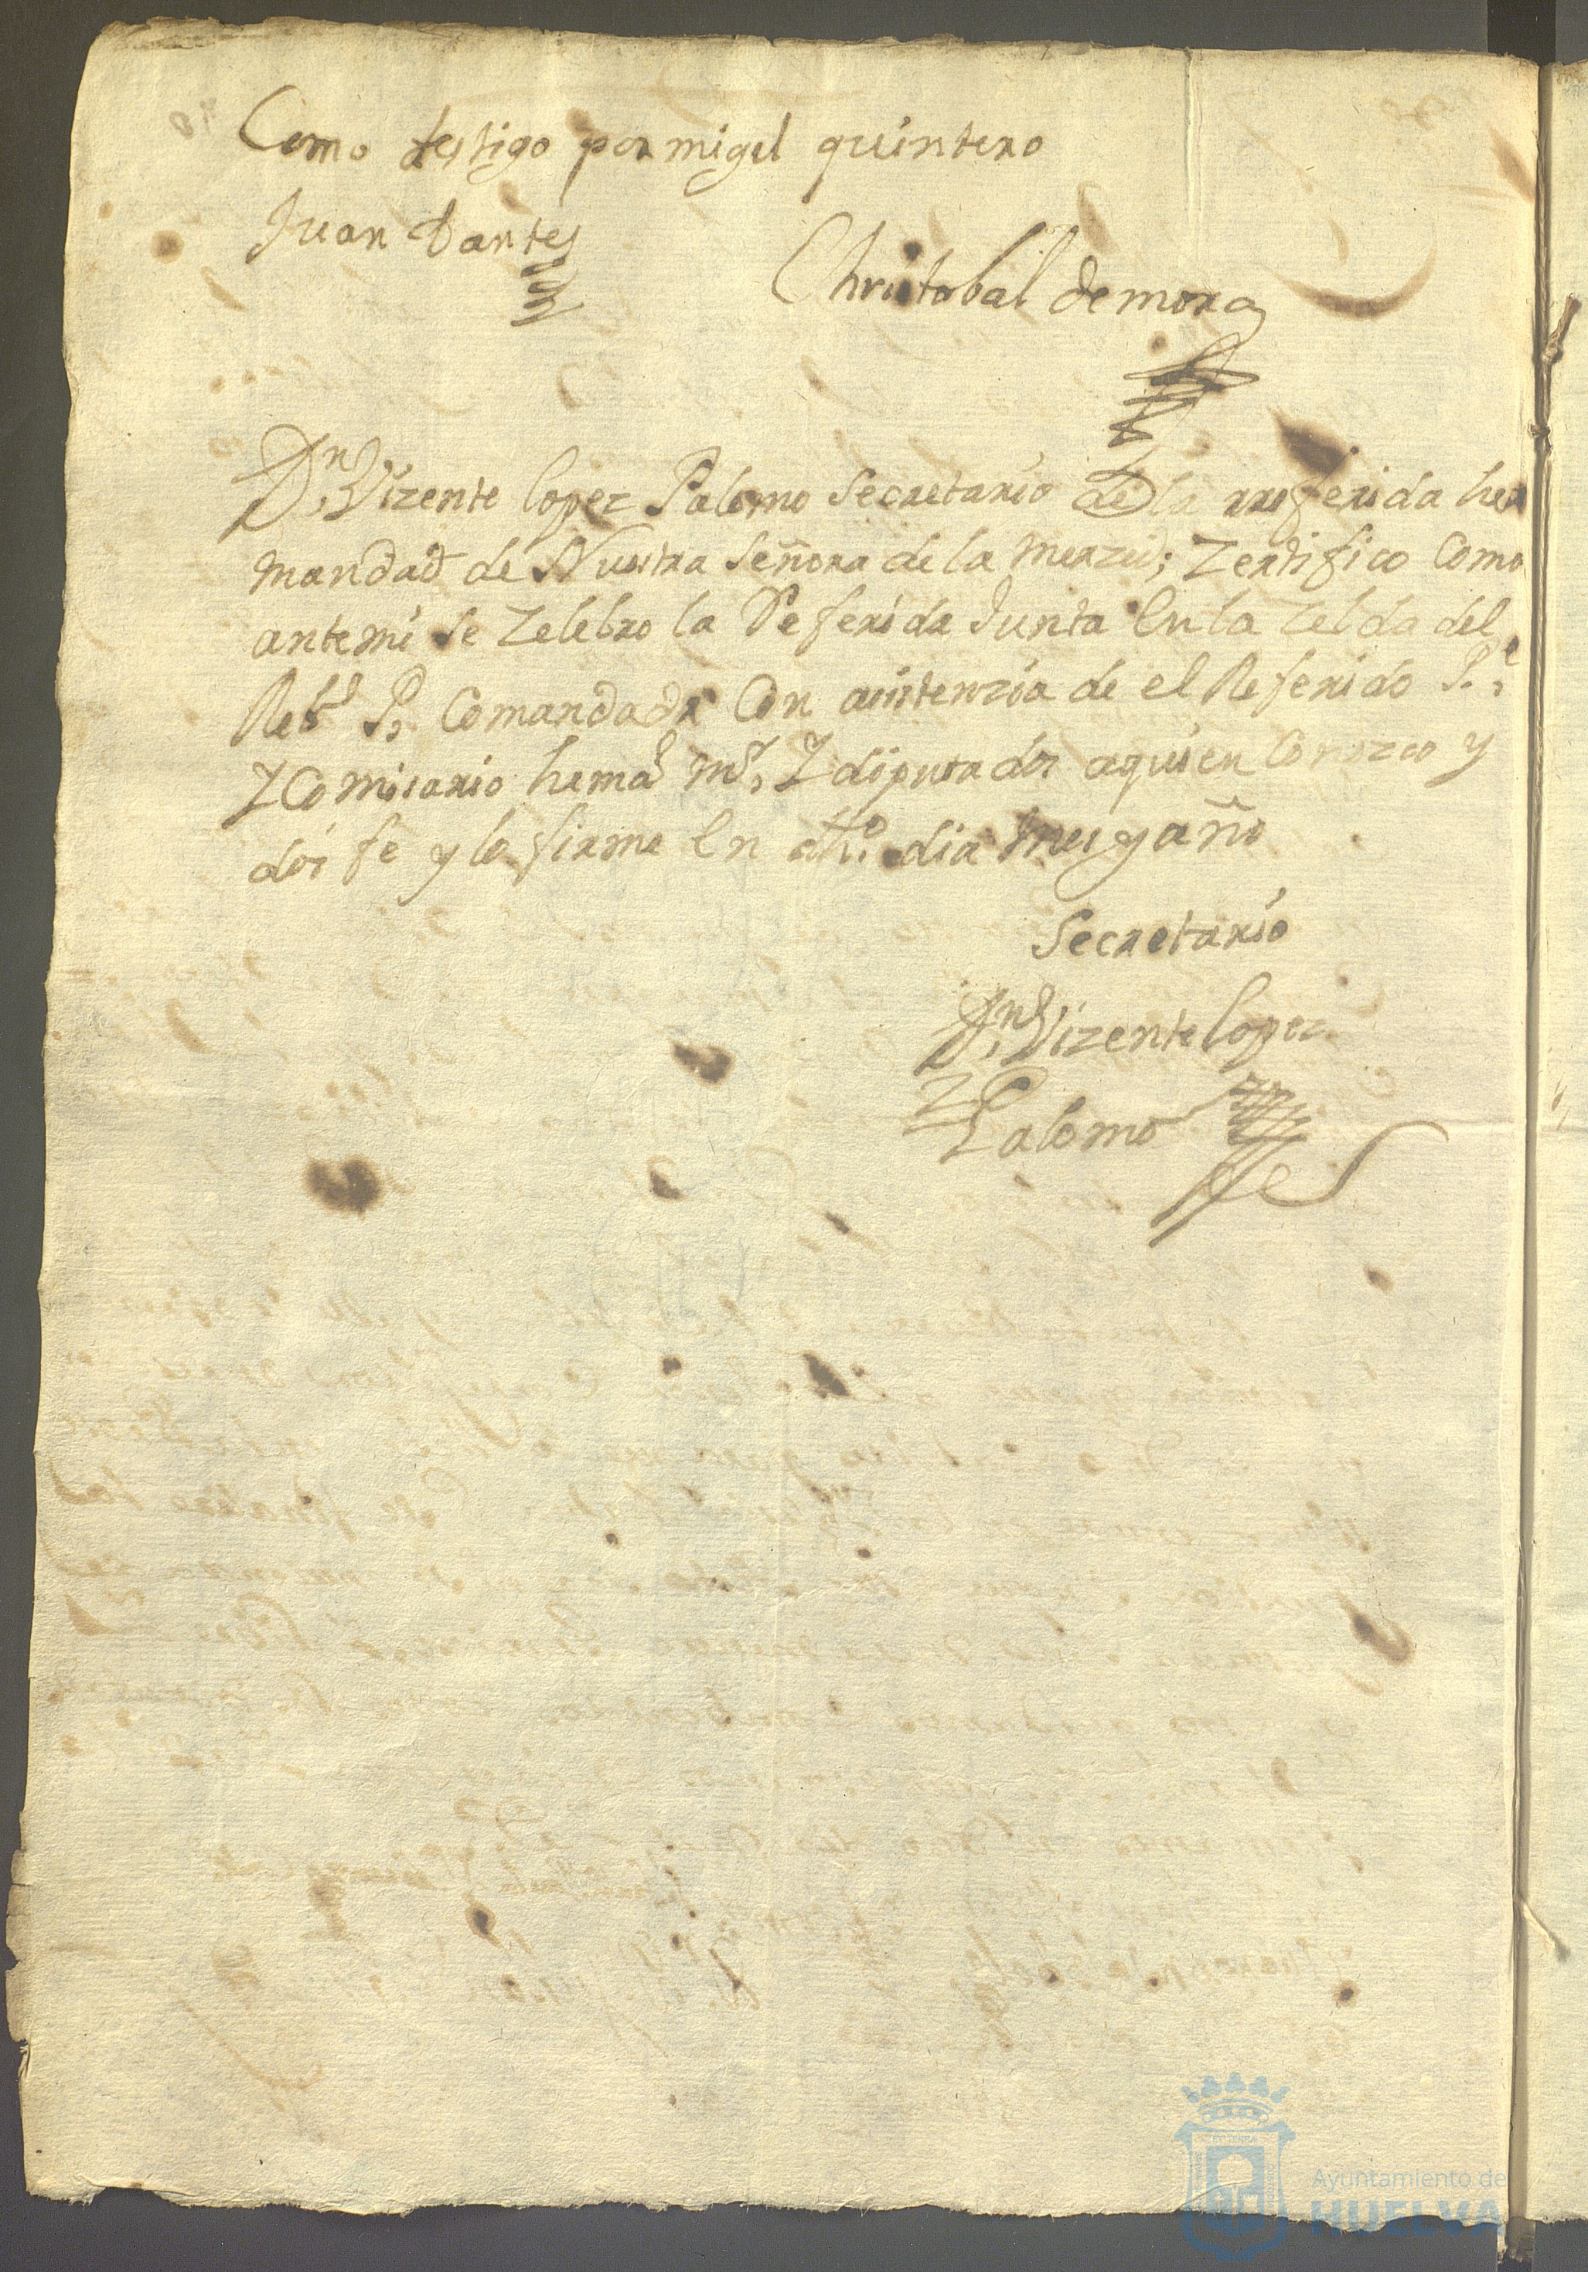 Como testigo por migel quintero
Juan dantes
Christobal de mora
Dn. Vizente lopez Palomo Secretario de la rreferida her
mandad de Nustra Señora de la merzed; Zertifico Como
ante mi se Zelebro la Referida Junta En la Zelda del
Rebd. P. Comandador Con asistenzia de el Referido P.e
Y Comisario herma.d mr. Y diputados aquien Conozco y
doi fe y lo firme En dho. dia mes y año
Secretario
Dn. Vizente lopez
Y Palomo
Ayuntamiento de
HUELVA